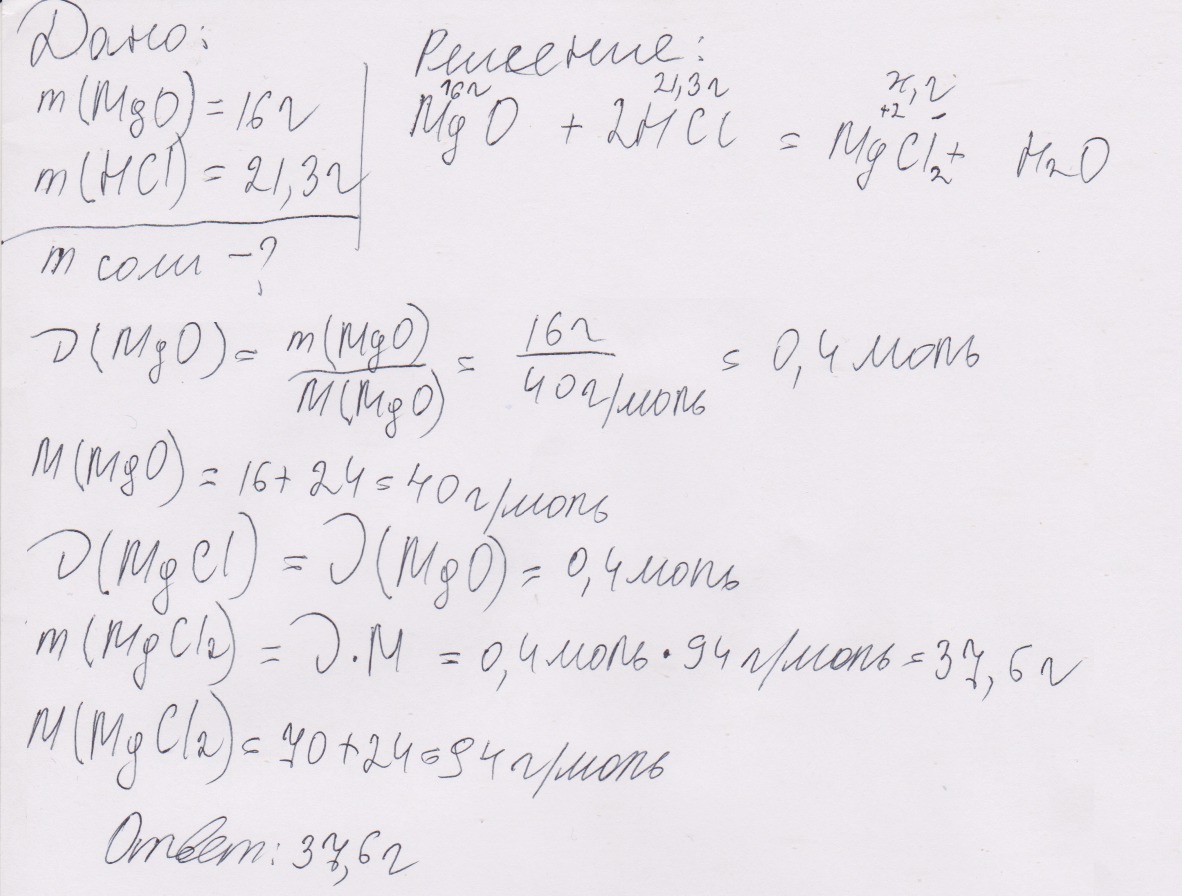 Дано:
m(MgO) = 16 г
m(HCl) = 21,3 г
m соли - ?
Решение:
16г 21,3 г x, г
+2 -
MgO + 2HCl = MgCl2 + H2O
ν(MgO) = m(MgO)/M(MgO) = 16 г/40 г/моль = 0,4 моль
M(MgO) = 16 + 24 = 40 г/моль
ν(MgCl) = ν(MgO) = 0,4 моль
m(MgCl2) = ν · M = 0,4 моль · 94 г/моль = 37,6 г
M(MgCl2) = 70 + 24 = 94 г/моль
Ответ: 37,6 г